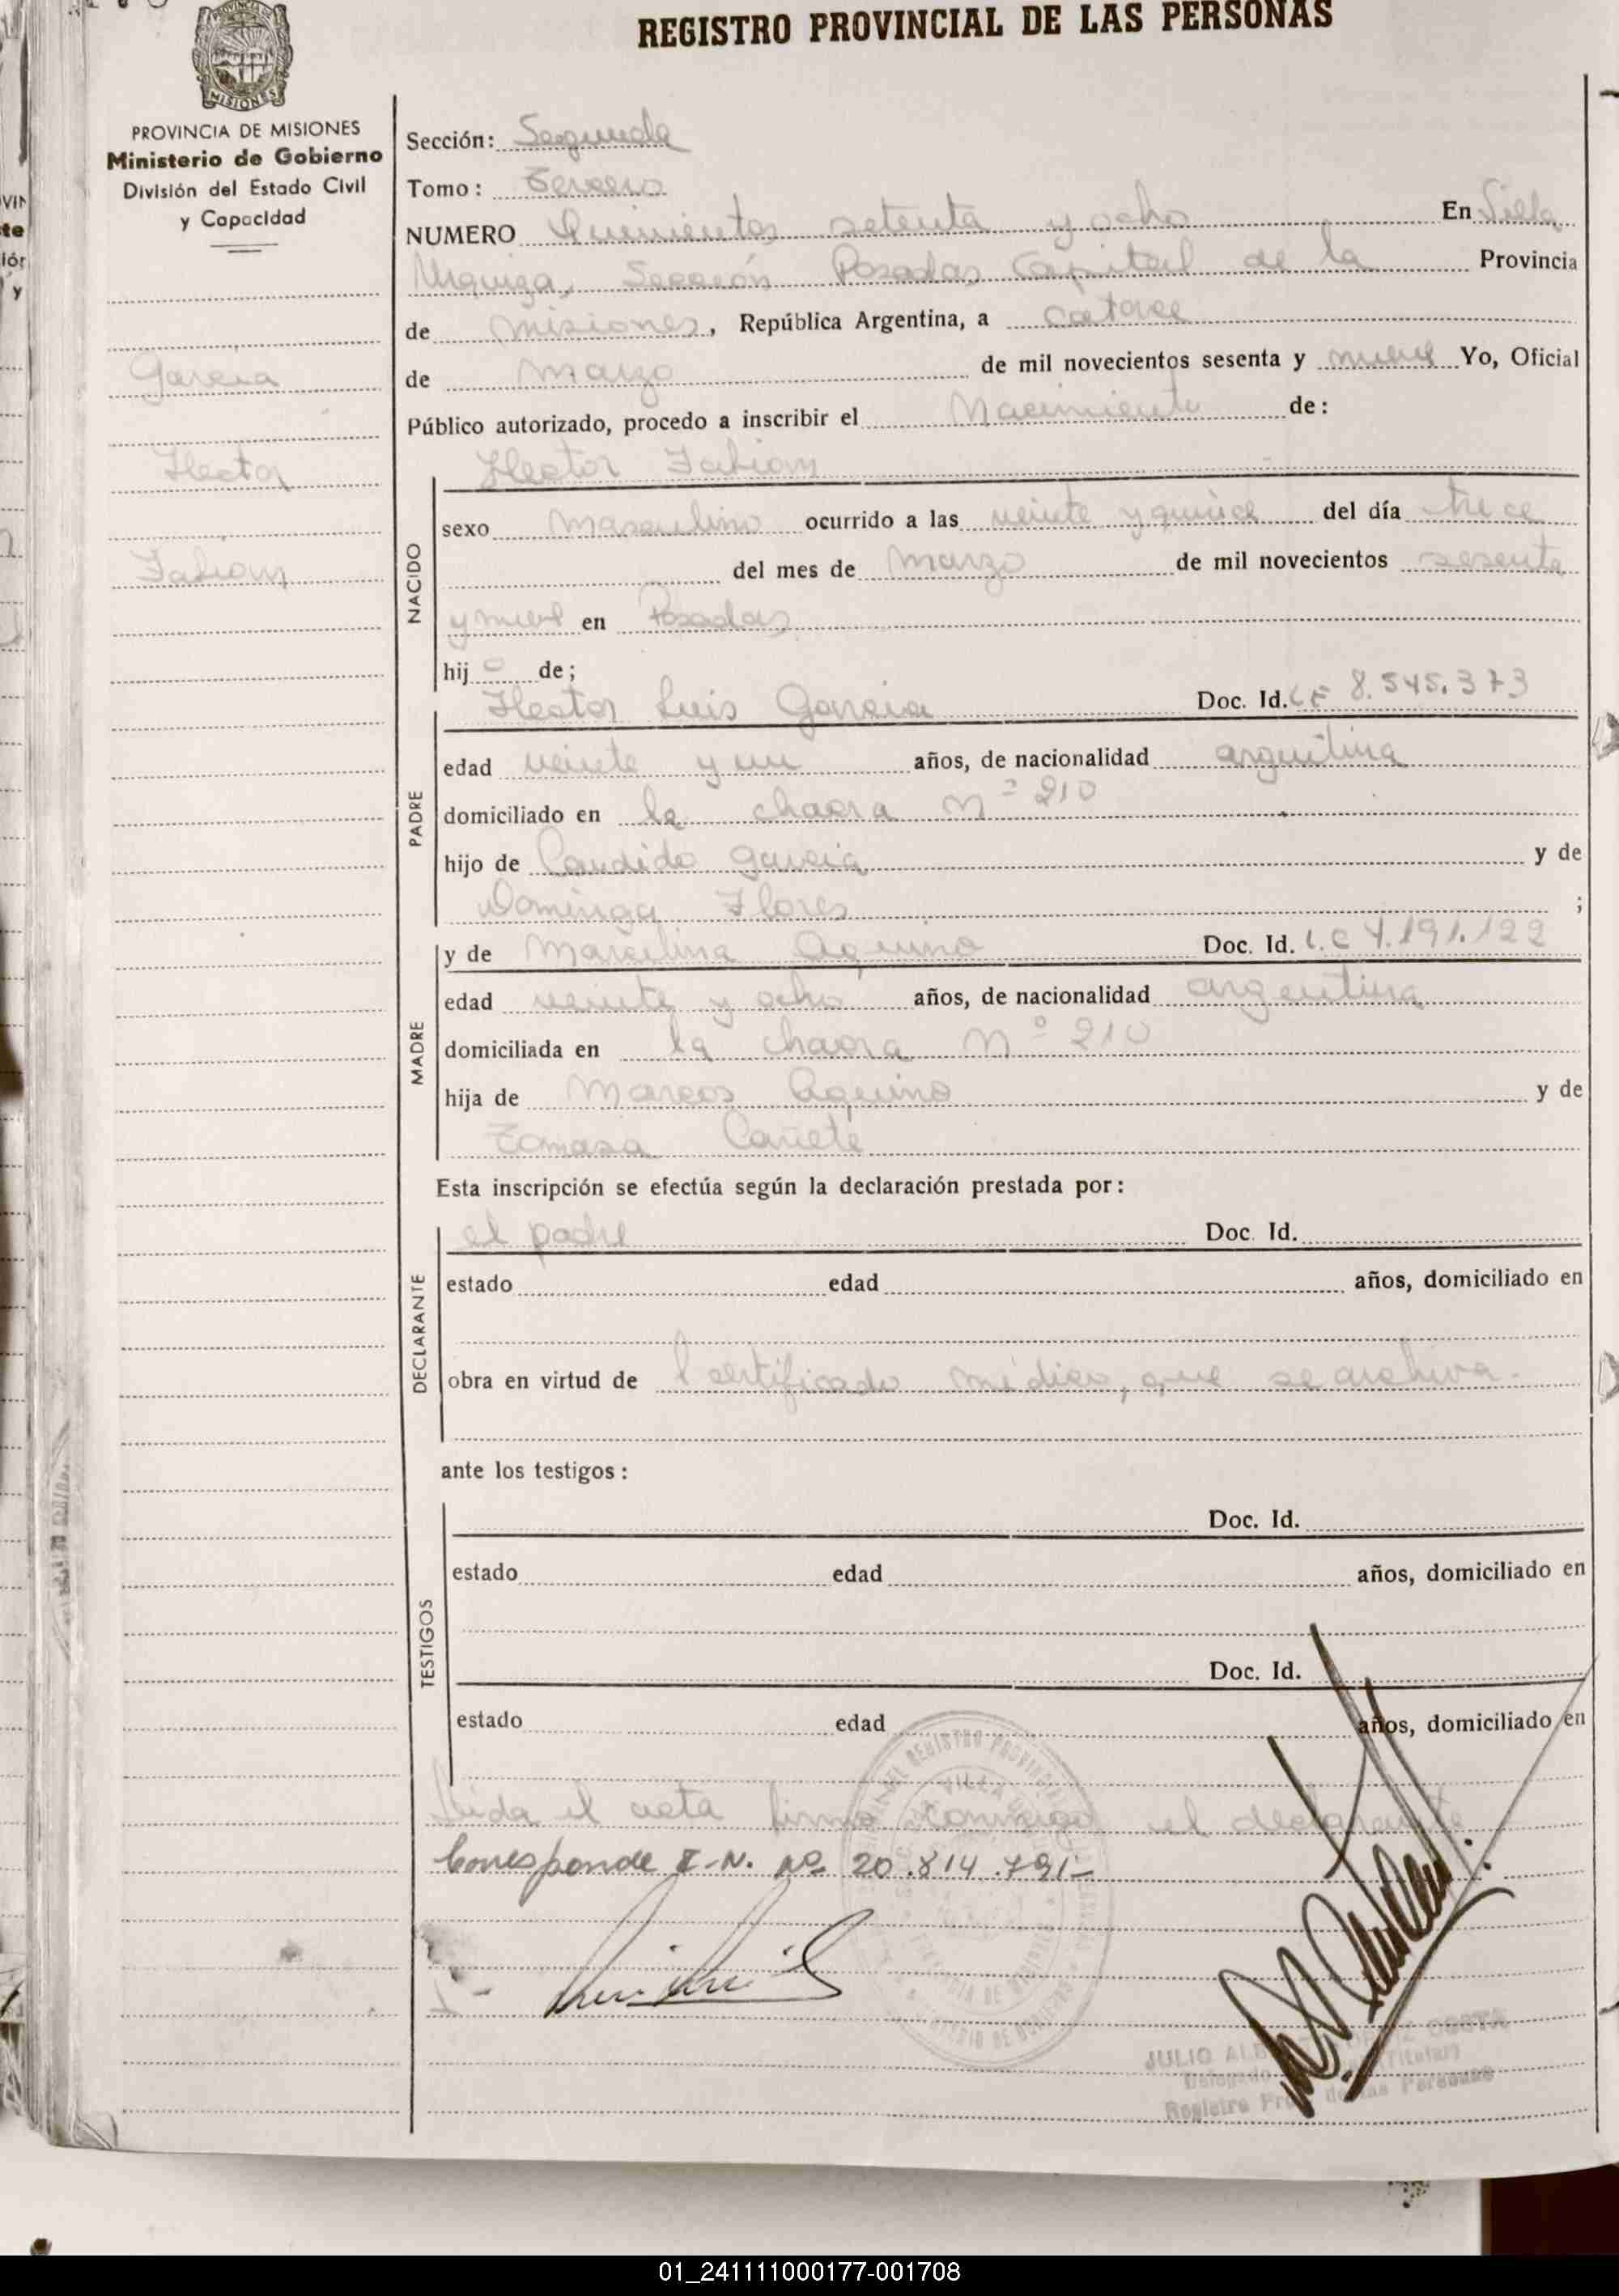 REGISTRO PROVINCIAL DE LAS PERSONAS
MISIONES
PROVINCIA DE MISIONES
Ministerio de Gobierno
División del Estado Civil
y Capacidad
Garcia
Hector
Fabian
Sección: Segunda
Tomo: Tercero
NUMERO Quinientos setenta y ocho En Villa
Urquiza, Sección Posadas Capital de la Provincia
de misiones, República Argentina, a catorce
de marzo de mil novecientos sesenta y nueve Yo, Oficial
Público autorizado, procedo a inscribir el Nacimiento de:
Hector Fabian
NACIDO
sexo masculino ocurrido a las veinte y quince del día trece
del mes de marzo de mil novecientos sesenta
y nueve en Posadas
hijo de;
Hector Luis Garcia Doc. Id. LE 8.545.373
PADRE
edad veinte y un años, de nacionalidad argentina
domiciliado en la chacra nº 210
hijo de Candido Garcia y de
Dominga Flores ;
y de Marcelina Aquino Doc. Id. L.C 4.191.122
MADRE
edad veinte y ocho años, de nacionalidad argentina
domiciliada en la chacra nº 210
hija de Marcos Aquino y de
Tomasa Cañete
Esta inscripción se efectúa según la declaración prestada por:
el padre Doc. Id.
DECLARANTE
estado edad años, domiciliado en
obra en virtud de Certificado médico, que se archiva.-
ante los testigos:
TESTIGOS
Doc. Id.
estado edad años, domiciliado en
Doc. Id.
estado edad años, domiciliado en
Leida el acta firma conmigo el declarante
Corresponde I-N. Nº 20.814.791-
JULIO COSTA
(Titular)
Registro de las Personas
01_241111000177-001708